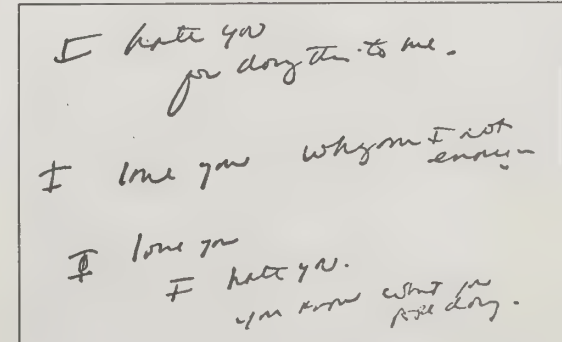 I hate you
for doing this to me.
I love you why am I not
enough
I love you
I hate you.
you know what you
are doing.